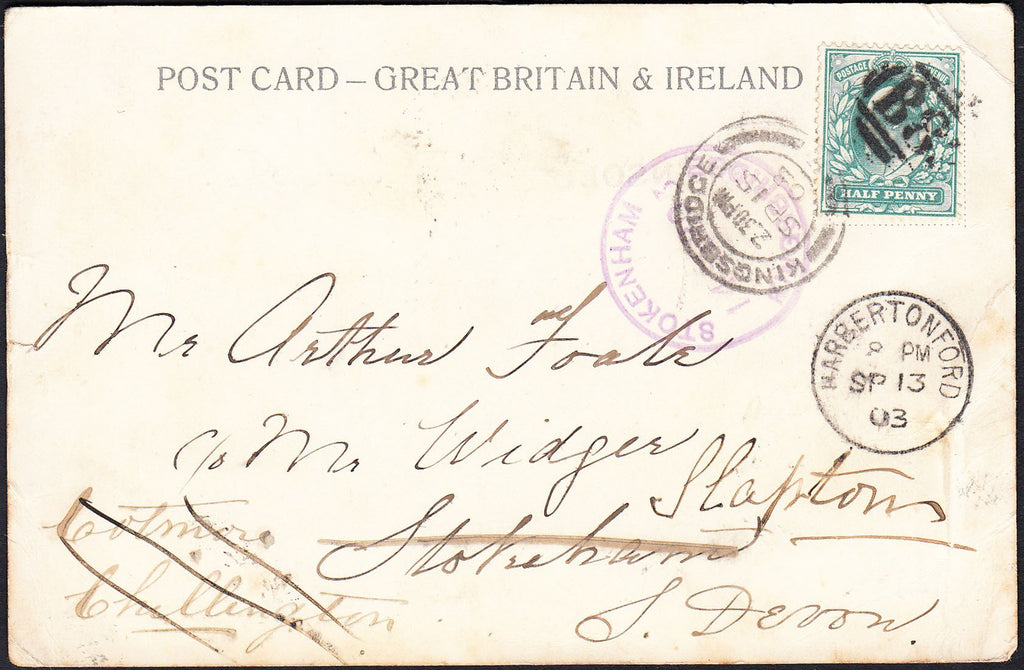 POST CARD – GREAT BRITAIN & IRELAND
POSTAGE
HALF PENNY
KINGSBRIDGE
2.30 PM
SP 15
03
STOKENHAM
HARBERTONFORD
8 PM
SP 13
03
Mr Arthur Foale
c/o Mr Widger
Slapton
Stokeham
S. Devon.
Cotmore
Chillington